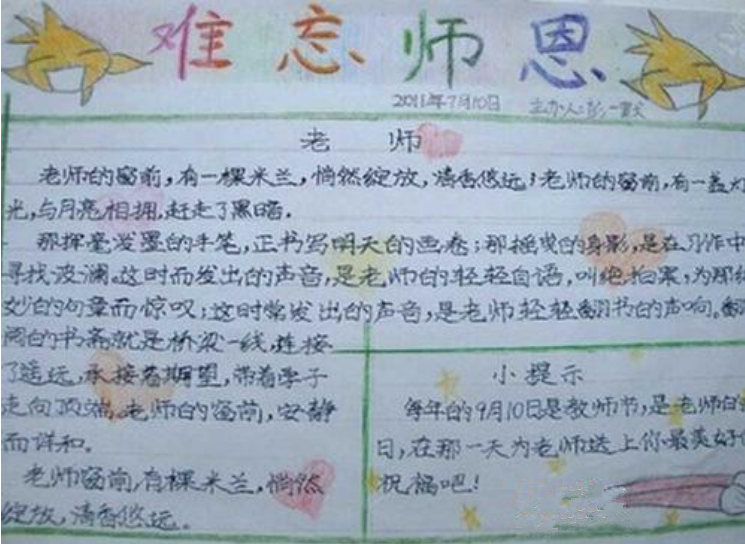 难忘师恩
2011年7月10日 主办人:彭一
老 师
老师的窗前,有一棵米兰,悄然绽放,清香悠远;老师的窗前,有一盏灯
光,与月亮相拥,赶走了黑暗。
那挥毫泼墨的手笔,正书写明天的画卷;那摇曳的身影,是在习作中
寻找波澜。这时而发出的声音,是老师的轻轻自语,叫绝拍案,为那
妙的句章而惊叹;这时常发出的声音,是老师轻轻翻书的声响。翻
阅的书斋就是桥梁一线,连接
了遥远,承接着期望,带着学子
走向顶端。老师的窗前,安静
而详和。
老师窗前,有棵米兰,悄然
绽放,清香悠远。
小提示
每年的9月10日是教师节,是老师的
日,在那一天为老师送上你最美好
祝福吧!